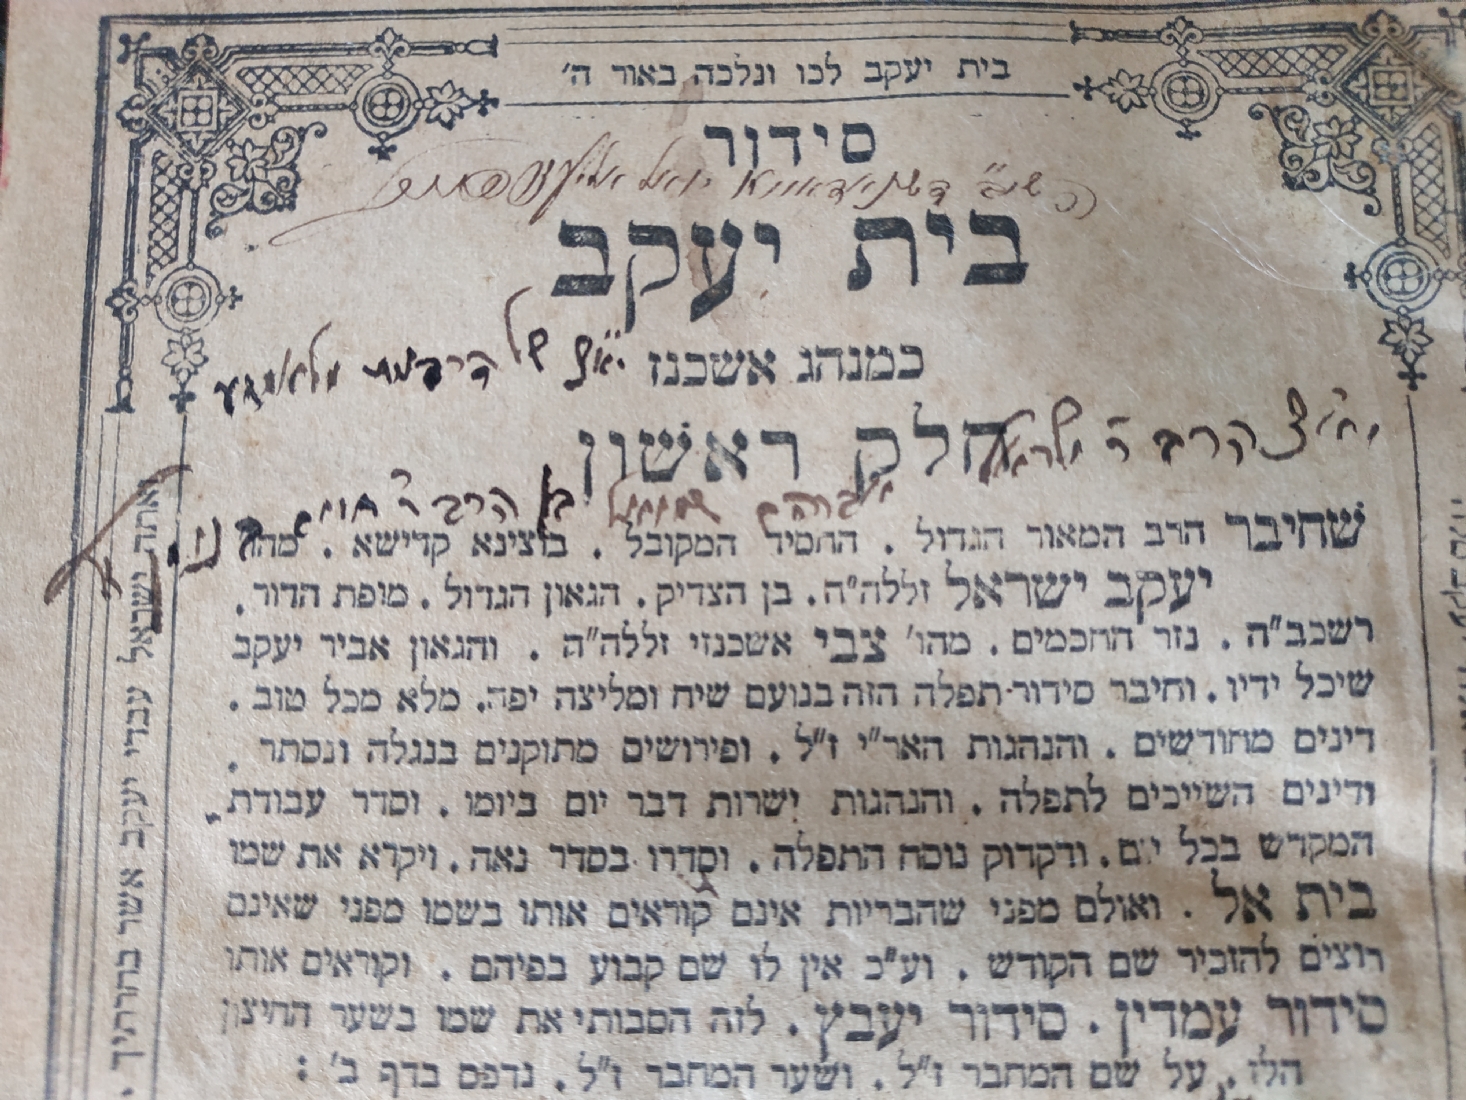 בית יעקב לכו ונלכה באור ה׳
סידור
בית יעקב
כמנהג אשכנז
של
חלק ראשון
הרב
הרב
שחיבר הרב המאור הגדול . החסיד המקובל . בוצינא קדישא . מהו׳
יעקב ישראל זללה"ה. בן הצדיק. הגאון הגדול. מופת הדור.
רשכב"ה . נזר החכמים . מהו׳ צבי אשכנזי זללה"ה . והגאון אביר יעקב
שיכל ידיו . וחיבר סידור תפלה הזה בנועם שיח ומליצה יפה. מלא מכל טוב .
דינים מחודשים . והנהגות האר"י ז"ל . ופירושים מתוקנים בנגלה ונסתר .
ודינים השייכים לתפלה . והנהגות ישרות דבר יום ביומו . וסדר עבודת
המקדש בכל יום. ודקדוק נוסח התפלה . וסדרו בסדר נאה. ויקרא את שמו
בית אל . ואולם מפני שהבריות אינם קוראים אותו בשמו מפני שאינם
רוצים להזכיר שם הקודש . וע"כ אין לו שם קבוע בפיהם . וקוראים אותו
סידור עמדין . סידור יעבץ . לזה הסבותי את שמו בשער החיצון
הלז . על שם המחבר ז"ל . ושער המחבר ז"ל . נדפס בדף ב׳ :
ואתה ישראל עבדי יעקב אשר בחרתיך .